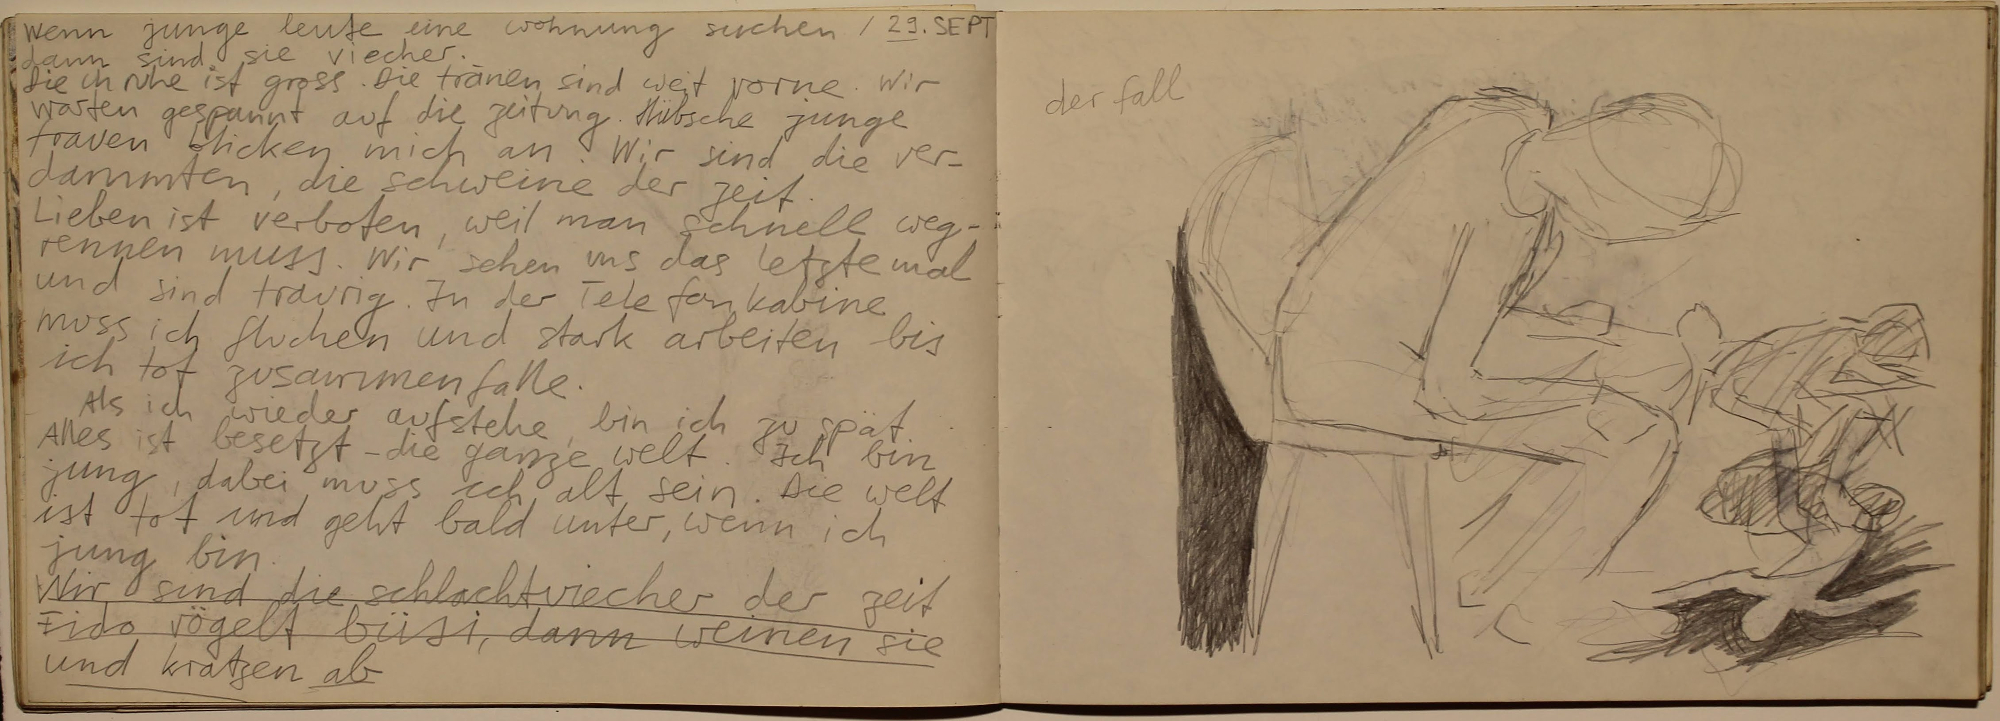 wenn junge leute eine wohnung suchen / 29. SEPT
dann sind sie viecher.
Die unruhe ist gross. Die tränen sind weit vorne. Wir
warten gespannt auf die zeitung. Hübsche junge
frauen blicken mich an. Wir sind die ver-
dammten, die schweine der zeit.
Lieben ist verboten, weil man schnell weg-
rennen muss. Wir sehen uns das letzte mal
und sind traurig. In der Telefonkabine
muss ich fluchen und stark arbeiten bis
ich tot zusammenfalle.
Als ich wieder aufstehe, bin ich zu spät.
Alles ist besetzt - die ganze welt. Ich bin
jung, dabei muss ich alt sein. Die welt
ist tot und geht bald unter, wenn ich
jung bin.
Wir sind die schlachtviecher der zeit
Fido vögelt büsi, dann weinen sie
und kratzen ab
der fall